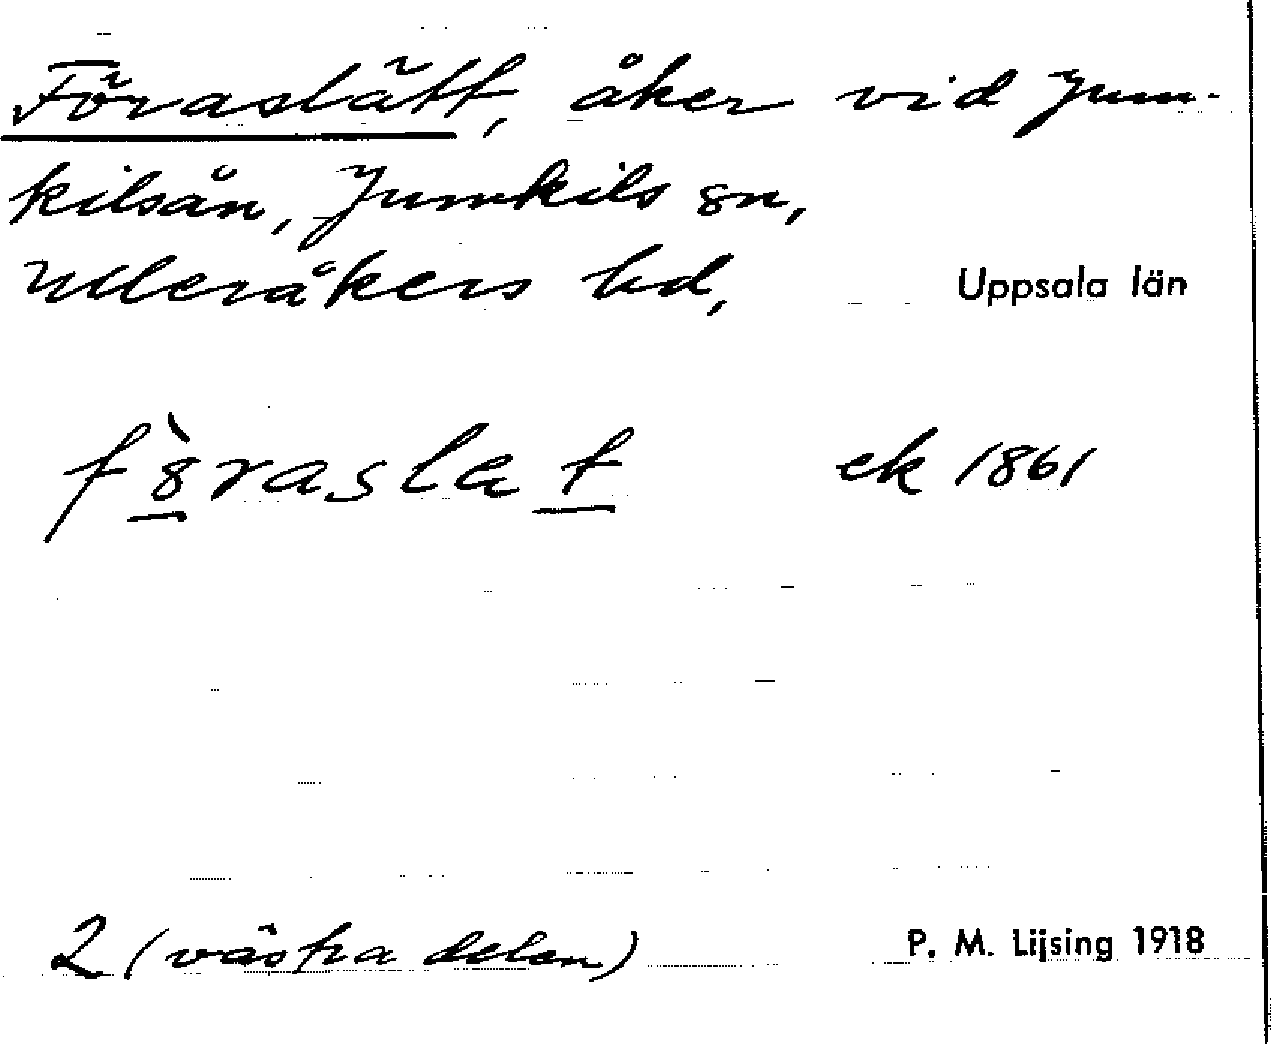 Föraslätt, åker vid Jum-
kilsån, Jumkils sn,
Ulleråkers hd, Uppsala län
fö̀raslat ek 1861
2 (västra delen) P. M. Lijsing 1918